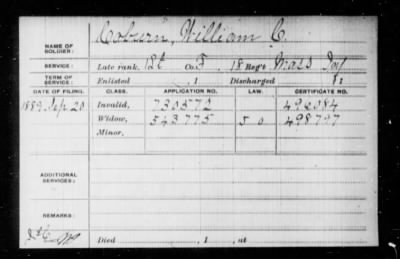 NAME OF SOLDIER: Coburn, William C.
SERVICE: Late rank, Co. F, 18 Reg't Mass Inf
TERM OF SERVICE: Enlisted , 1 Discharged , 1
DATE OF FILING. CLASS. APPLICATION NO. LAW. CERTIFICATE NO.
1889 Sep 20 Invalid, 730572
Widow, 543775 498797
Minor,
ADDITIONAL SERVICES:
REMARKS:
Died , 1 , at